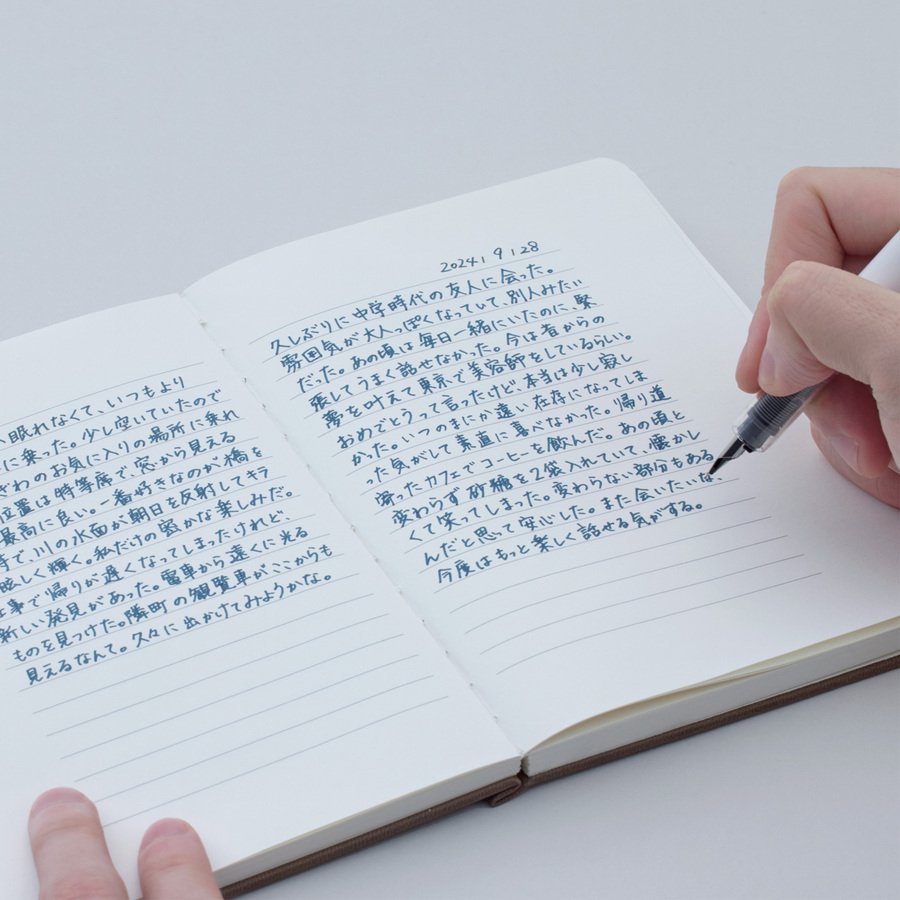 眠れなくて、いつもより
に乗った。少し空いていたので
ぎわのお気に入りの場所に乗れ
位置は特等席で窓から見える
最高に良い。一番好きなのが橋を
時で川の水面が朝日を反射してキラ
眩しく輝く。私だけの密かな楽しみだ。
仕事で帰りが遅くなってしまったけれど、
新しい発見があった。電車から遠くに光る
ものを見つけた。隣町の観覧車がここからも
見えるなんて。久々に出かけてみようかな。
2024 | 9 | 28
久しぶりに中学時代の友人に会った。
雰囲気が大人っぽくなっていて、別人みたい
だった。あの頃は毎日一緒にいたのに、緊
張してうまく話せなかった。今は昔からの
夢を叶えて東京で美容師をしているらしい。
おめでとうって言ったけど本当は少し寂し
かった。いつのまにか遠い存在になってしま
った気がして素直に喜べなかった。帰り道
寄ったカフェでコーヒーを飲んだ。あの頃と
変わらず砂糖を2袋入れていて、懐かし
くて笑ってしまった。変わらない部分もある
んだと思って安心した。また会いたいな、
今度はもっと楽しく話せる気がする。